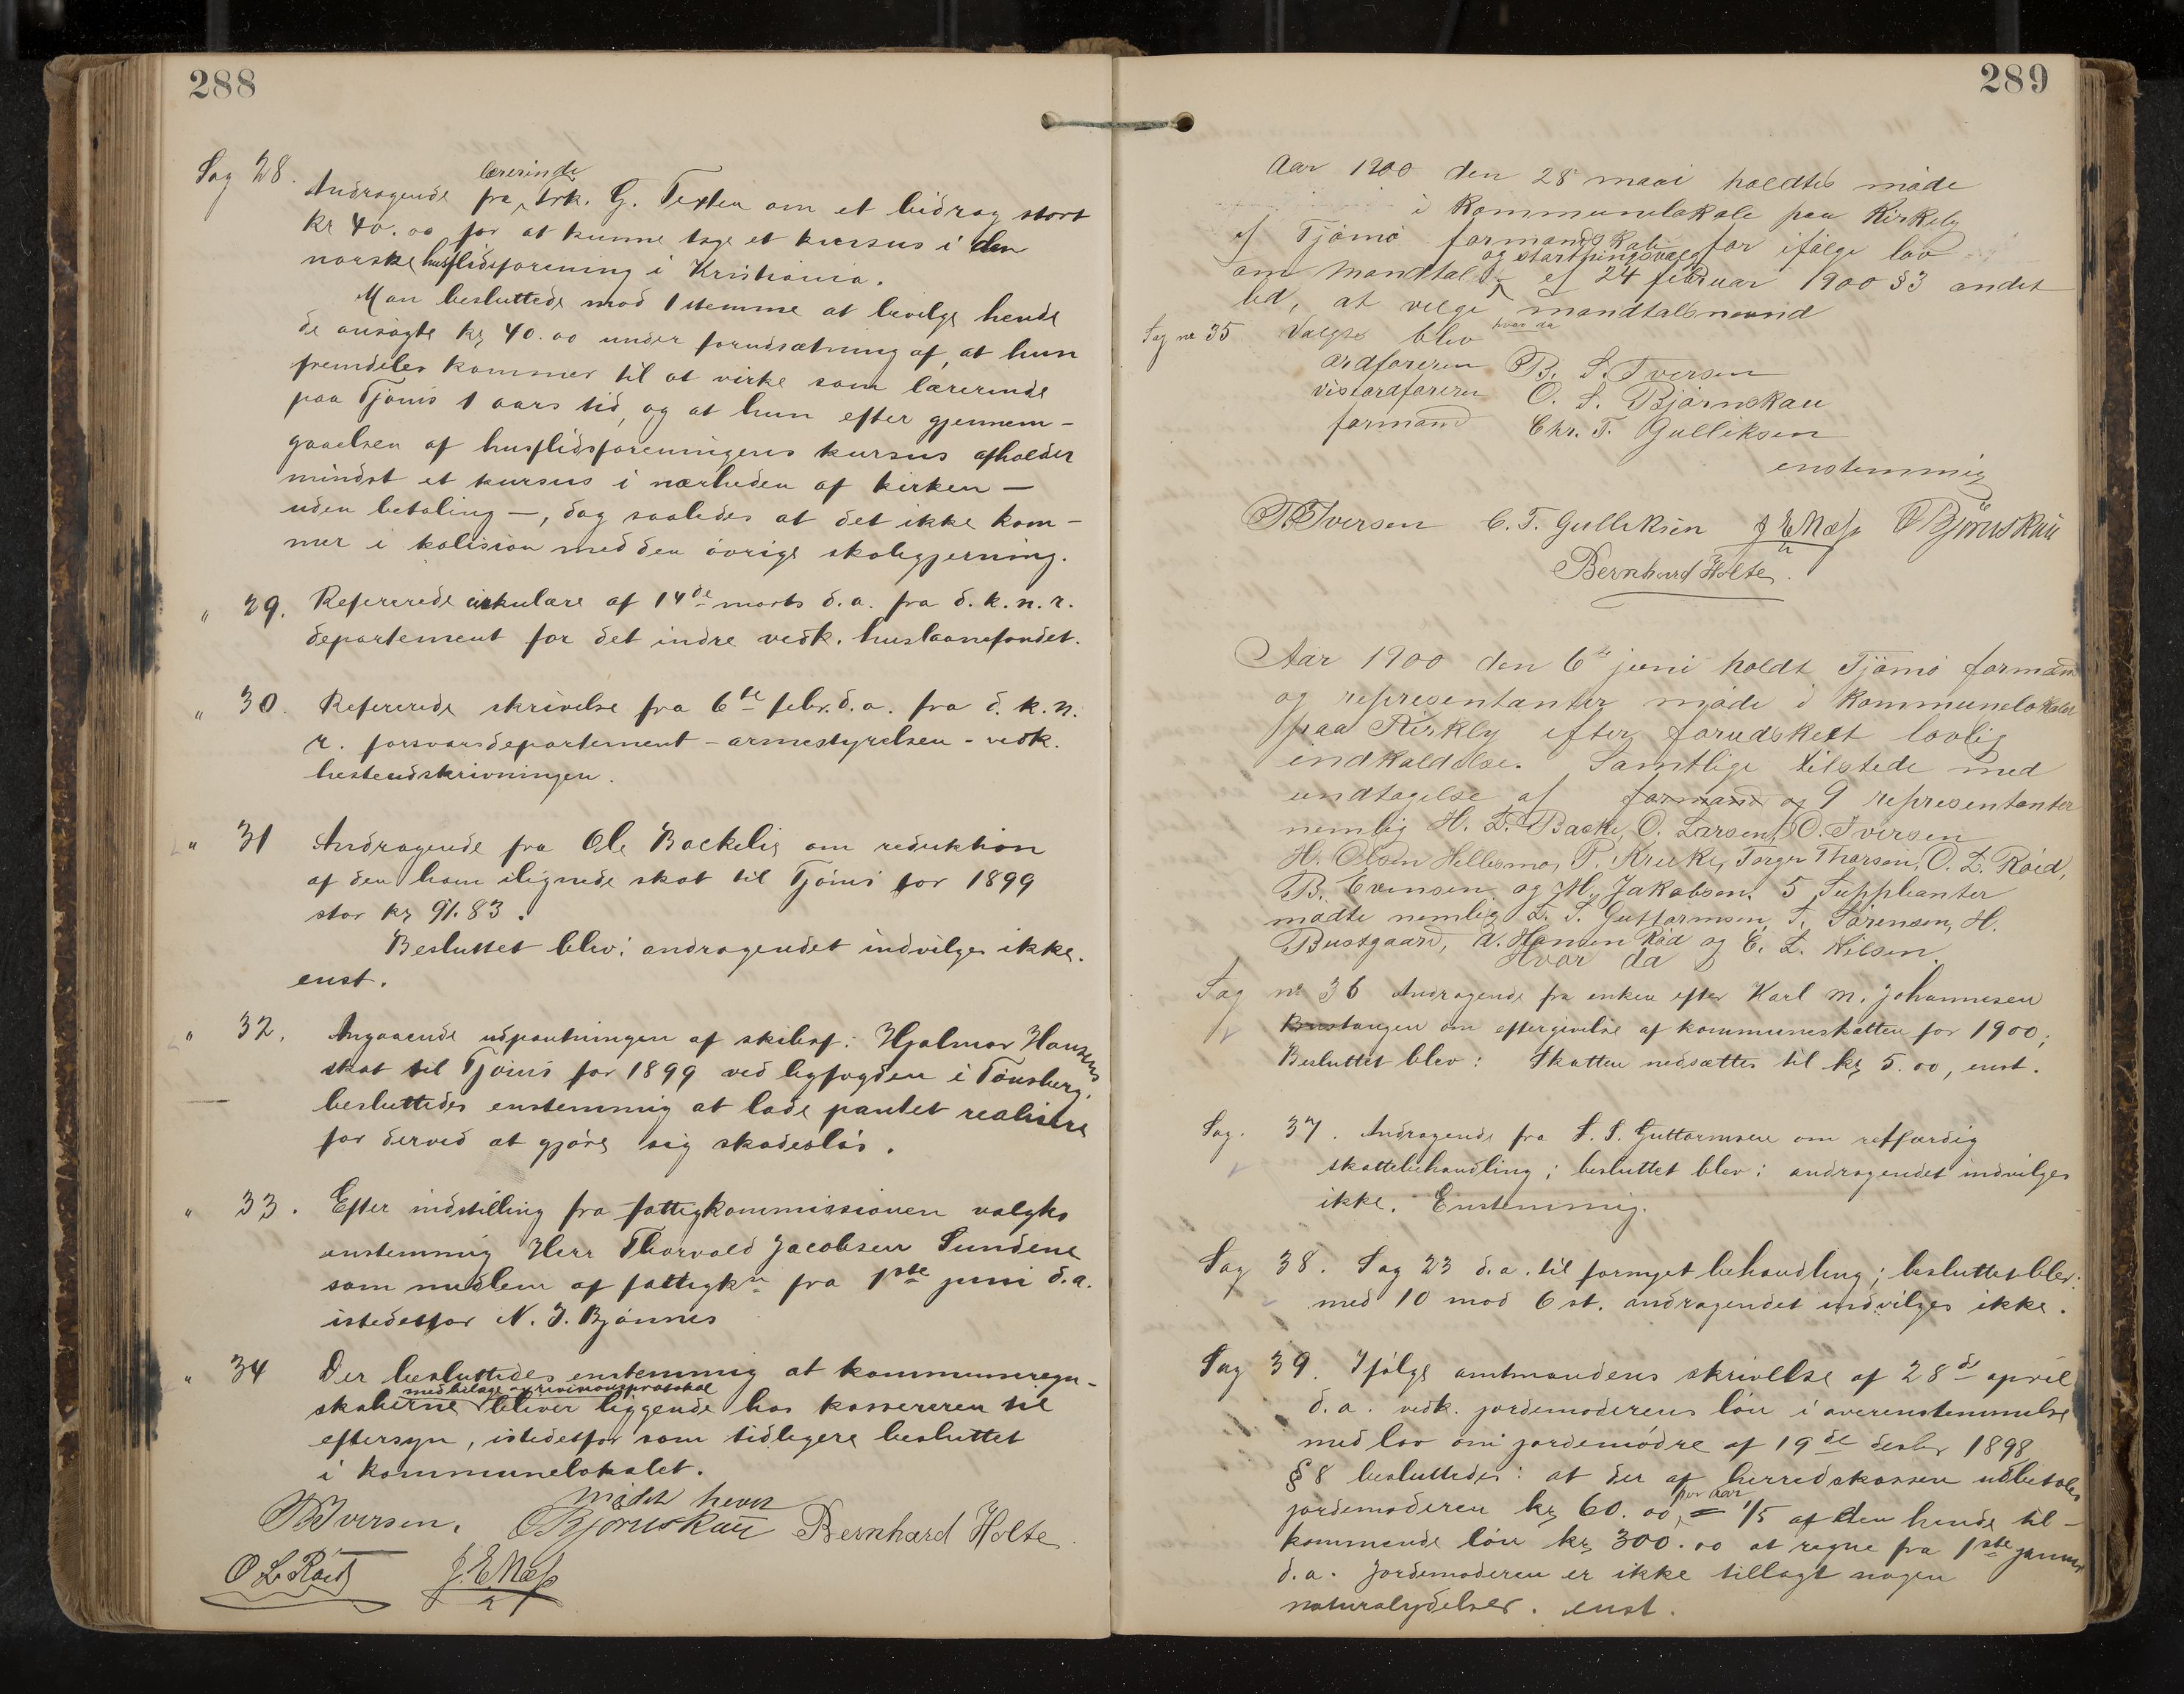 288
Sag 28. Andragende fra lærerinde frk. G. Texten om et bidrag stort
kr 40.00 for at kunne tage et kursus i den
norske husflidsforening i Kristiania.
Man besluttede mod 1 stemme at bevilge hende
de ansøgte kr 40.00 under forudsætning af, at hun
fremdeles kommer til at virke som lærerinde
paa Tjømø 1 aars tid, og at hun efter gjennem-
gaaelsen af husflidsforeningens kursus afholder
mindst et kursus i nærheden af kirken —
uden betaling —, dog saaledes at det ikke kom-
mer i kolision med den øvrige skolegjerning.
" 29. Refererede cirkulære af 14de marts d.a. fra d.k.n.r.
departement for det indre vedk. huslaanefondet.
" 30. Refererede skrivelse fra 6te febr. d.a. fra d.k.n.
r. forsvarsdepartement - armestyrelsen - vedk.
hesteudskrivningen.
" 31 Andragende fra Ole Backelig om reduktion
af den ham ilignede skat til Tjømø for 1899
stor kr 91.83.
Besluttet blev: andragendet indvilges ikke.
enst.
" 32. Angaaende udpantningen af skibsf. Hjalmar Hansens
skat til Tjømø for 1899 ved bgfogden i Tønsberg,
besluttedes enstemmig at lade pantet realisere
for derved at gjøre sig skadesløs.
" 33. Efter indstilling fra fattigkommissionen valgtes
enstemmig Herr Thorvald Jacobsen Sundene
som medlem af fattigkn fra 1ste juni d.a.
istedetfor N. J. Bjønnes
" 34 Der besluttedes enstemmig at kommuneregn-
skaberne med bilage og revisionsprotokol bliver liggende hos kassereren til
eftersyn, istedetfor som tidligere besluttet
i kommunelokalet.
Mødet hevet
B Iversen. O Bjørnskau Bernhard Holte
O L Røed J. E Næss
289
Aar 1900 den 28 maai holdtes møde
i Kommunelokale paa Kirkely
af Tjømø formandskab for ifølge lov
om Mandtal og stortingsvalg af 24 februar 1900 §3 andet
led, at velge mandtalsnevnd
Sag no 35 Valgte blev hvor da
ordføreren B. S. Iversen
viseordføreren O. S. Bjørnskau
formand Chr. T. Gulliksen
enstemmig
B Iversen C. T. Gulliksen J E Næss O Bjørnskau
Bernhard Holte.
Aar 1900 den 6te juni holdt Tjømø formand
og representanter møde i Kommunelokalet
paa Kirkely efter forudskeet lovlig
indkaldelse. Samtlige tilstede med
undtagelse af formand og 9 representanter
nemlig H. L. Backe, O. Larsen, O. Iversen
H. Olsen Hellesmo, P. Kruke, Torger Tharson, O. L. Røed,
B. Evensen og M. Jakobsen. 5 Suppleanter
mødte nemlig L. S. Guttormsen, T. Sørensen, H.
Bustgaard, A. Hansen Rød og E. L. Nilsen.
Hvor da
Sag no 36 Andragende fra enken efter Karl M. Johannesen
Krustangen om eftergivelse af kommuneskatten for 1900;
Besluttet blev: Skatten nedsættes til kr 5.00, enst.
Sag. 37. Andragende fra S. S. Guttormsen om retfærdig
skattebehandling; besluttet blev: andragendet indvilges
ikke. Enstemmig.
Sag 38. Sag 23 d.a. til fornyet behandling; besluttet blev:
med 10 mod 6 st. andragendet indvilges ikke.
Sag 39. Ifølge amtmandens skrivelse af 28de april
d.a. vedk. jordemoderens løn i overenstemmelse
med lov om jordemødre af 19de decbr 1898
§8 besluttedes: at der af herredskassen udbetales
jordemoderen kr 60.00 per aar = 1/5 af den hende til-
kommende løn kr 300.00 at regne fra 1ste januar
d.a. Jordemoderen er ikke tillagt nogen
naturalydelser. enst.